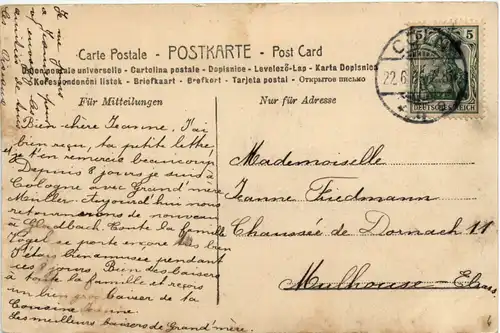 Carte Postale - POSTKARTE - Post Card
Union postale universelle - Cartolina postale - Dopisnice - Levelező-Lap - Karta Dopisnica
Korespondenční listek - Briefkaart - Brefkort - Tarjeta postal - Открытое письмо
Für Mitteilungen
Nur für Adresse
5 5
DEUTSCHES REICH
22.6
Bien chère Jeanne, J'ai
bien reçu, ta petite lettre,
et je t'en remercie beaucoup
Depuis 8 jours je suis à
Cologne avec Grand'mère
Müller. Aujourd'hui nous
retournerons de nouveau
à Gladbach. Toute la famille
Vogel se porte encore très bien
J'étais bien amusée pendant
ces 8 jours. Bien des baisers
à toute la famille et reçois
un bien gros baiser de ta
Cousine
Les meilleurs baisers de Grand'mère.
Mademoiselle
Jeanne Friedmann
Chaussée de Dornach 11
Mulhouse-Elsass